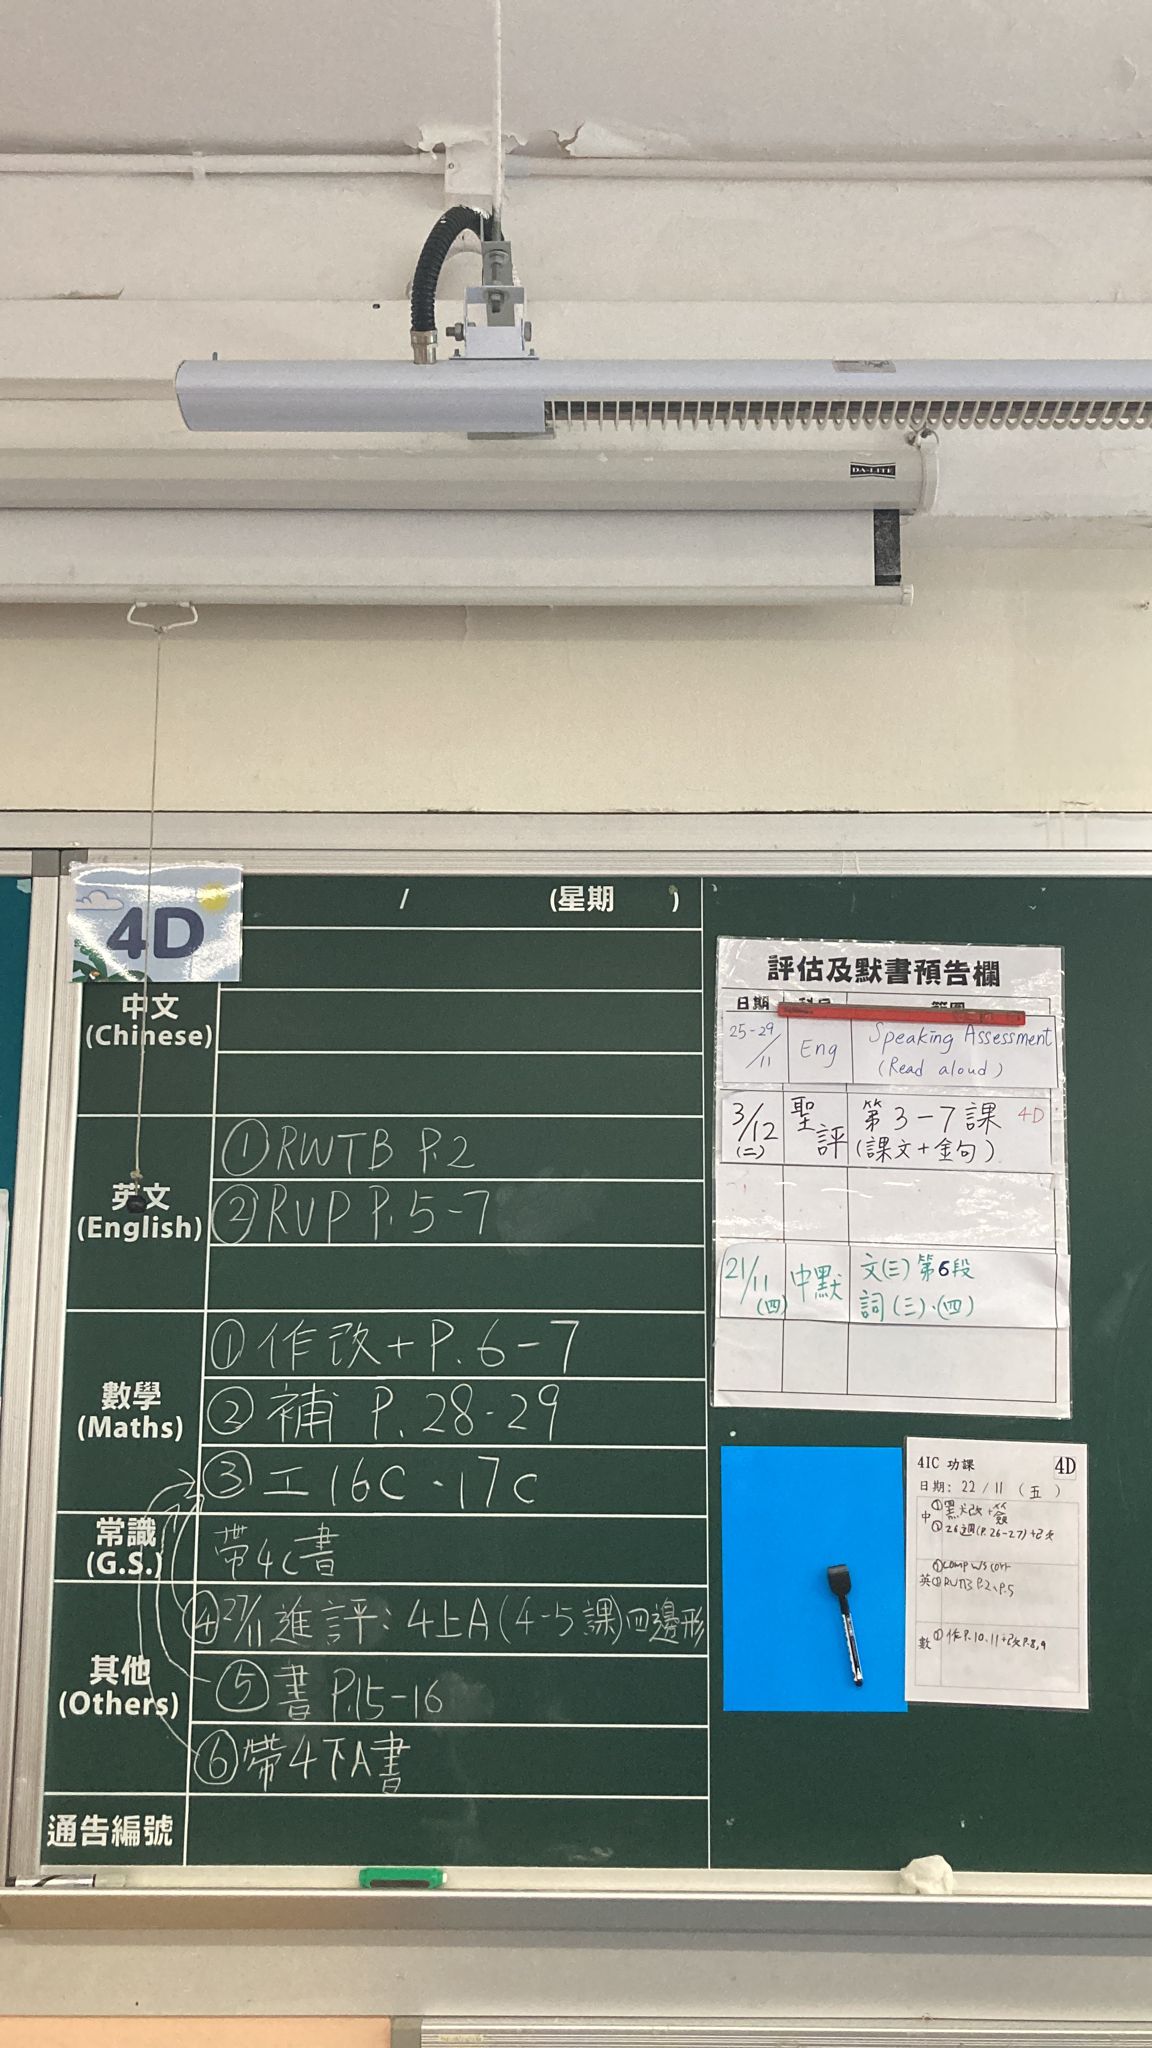 DA-LITE
4D
/ (星期 )
中文
(Chinese)
英文
(English)
①RWTB P.2
②RVP P.5-7
數學
(Maths)
①作改+P.6-7
②補 P.28-29
③工16C、17C
常識
(G.S.)
帶4C書
其他
(Others)
④27/11進評：4上A(4-5課)四邊形
⑤書 P.15-16
⑥帶4下A書
通告編號
評估及默書預告欄
日期 科目 範圍
25-29/11 Eng Speaking Assessment
(Read aloud)
3/12 聖評 第3-7課 4D
(二) (課文+金句)
21/11 中默 文(三)第6段
(四) 詞(三)、(四)
4IC 功課 4D
日期: 22/11 (五)
中 ①默改+簽
②26週(P.26-27)+改
英 ①Comp W/S corr
②RWTB P.2、P.5
數 ①作P.10、11+改P.8,9